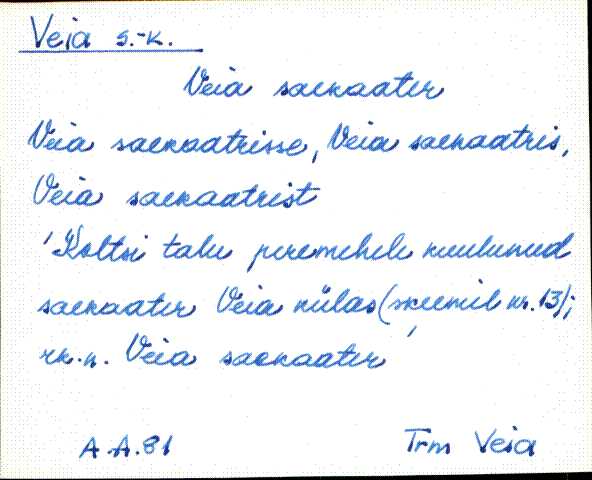 Veia s.-k.
Veia saekaater
Veia saekaatrisse, Veia saekaatris,
Veia saekaatrist
'Koltsi talu peremehele kuulunud
saekaater Veia külas (skeemil nr. 13);
rk.-n. Veia saekaater'
A.A.81 Trm Veia